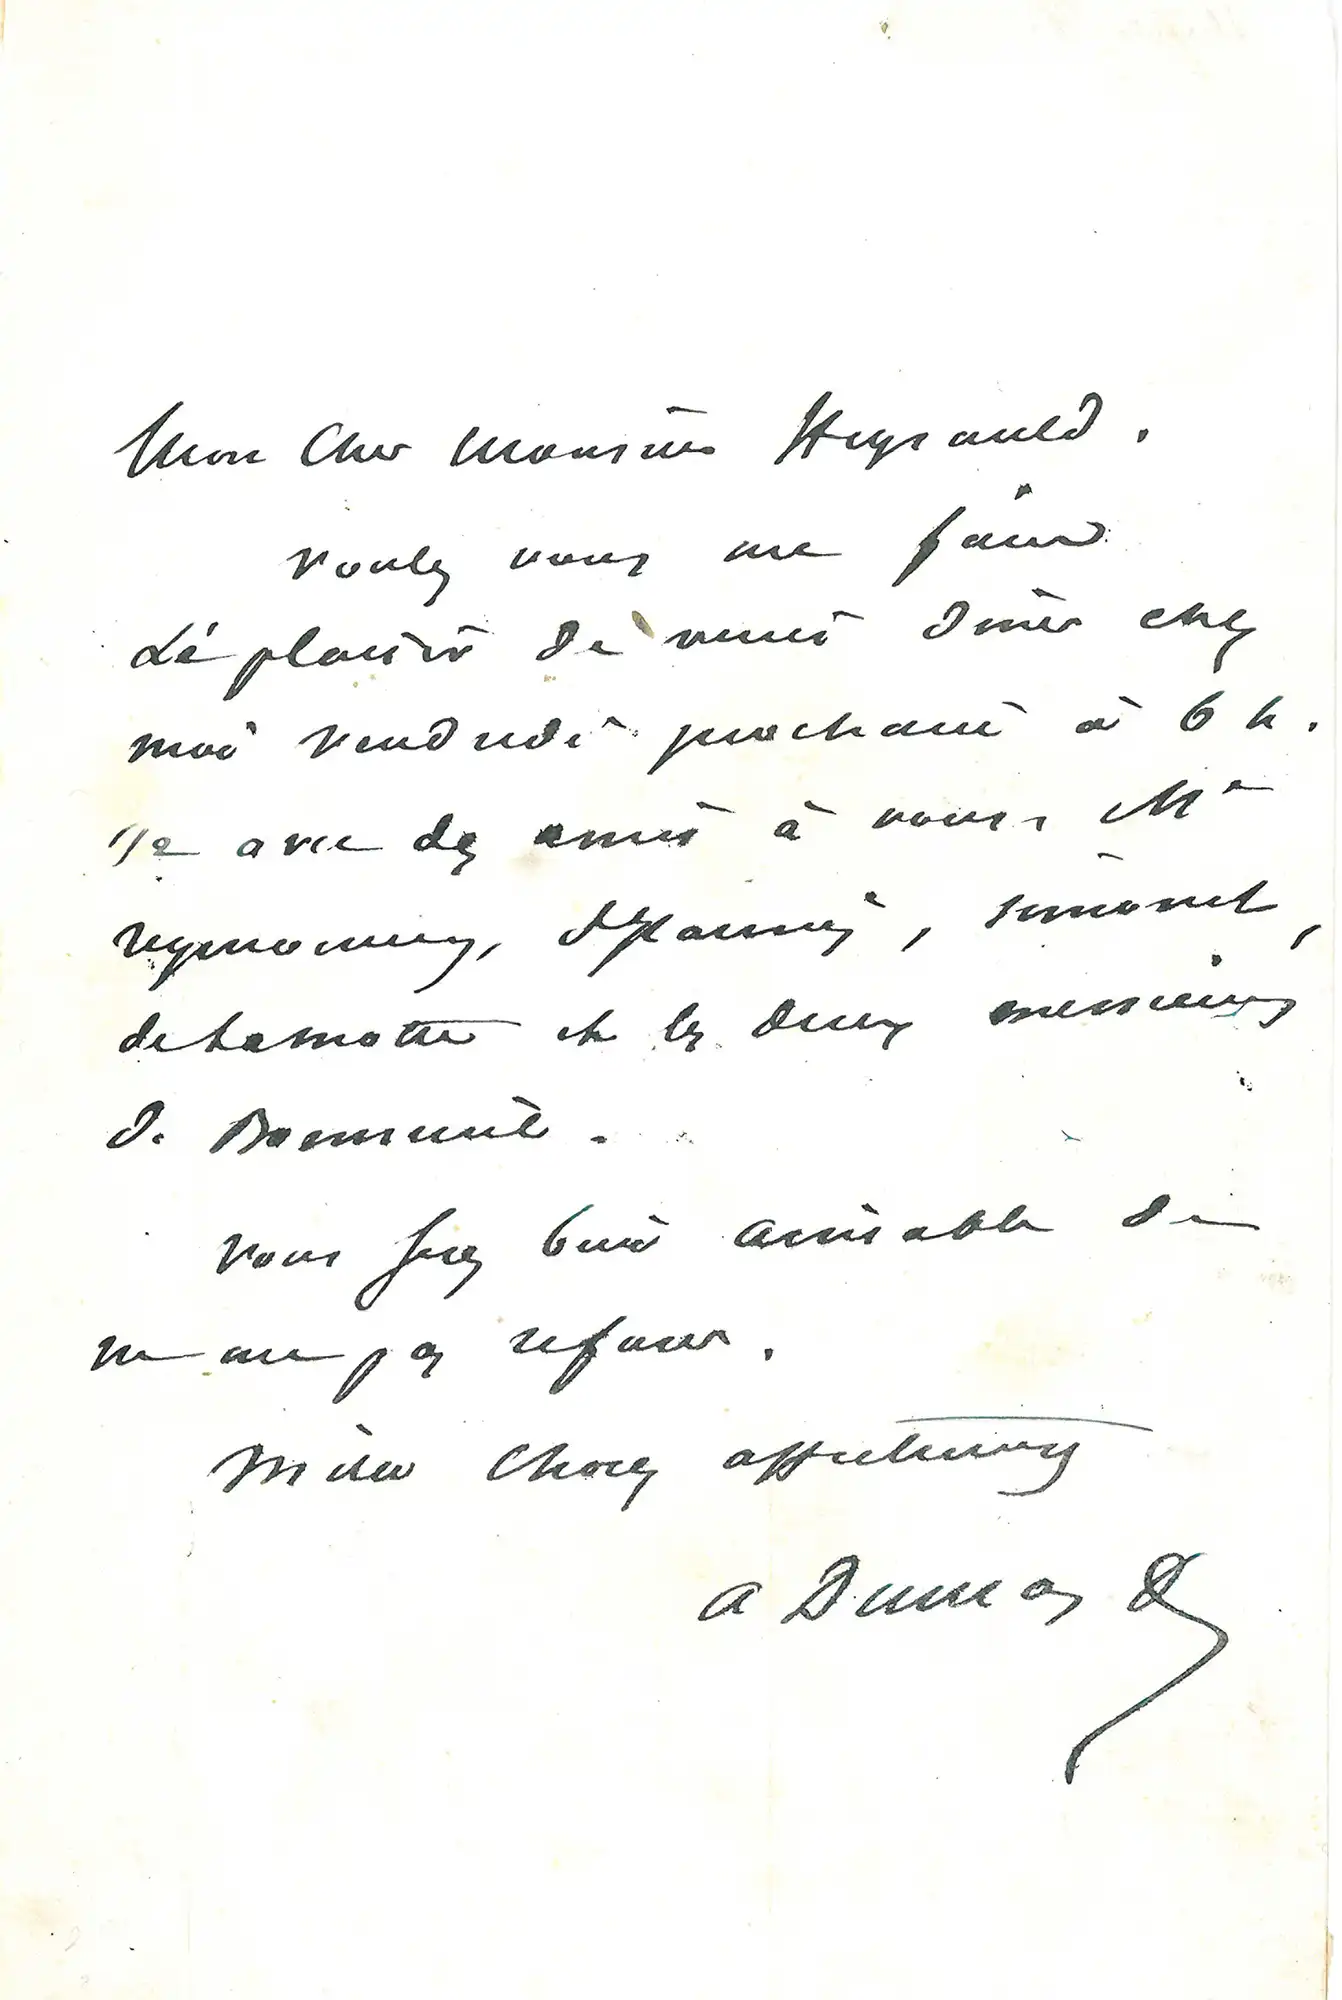 Mon cher Monsieur
voulez vous me faire
Le plaisir de venir diner chez
moi vendredi prochain à 6 h.
avec des amis à vous. Mr
simonet,
delamotte et les deux messieurs
de
vous serez bien aimable de
ne me pas refuser.
Mille choses affectueuses
A Dumas